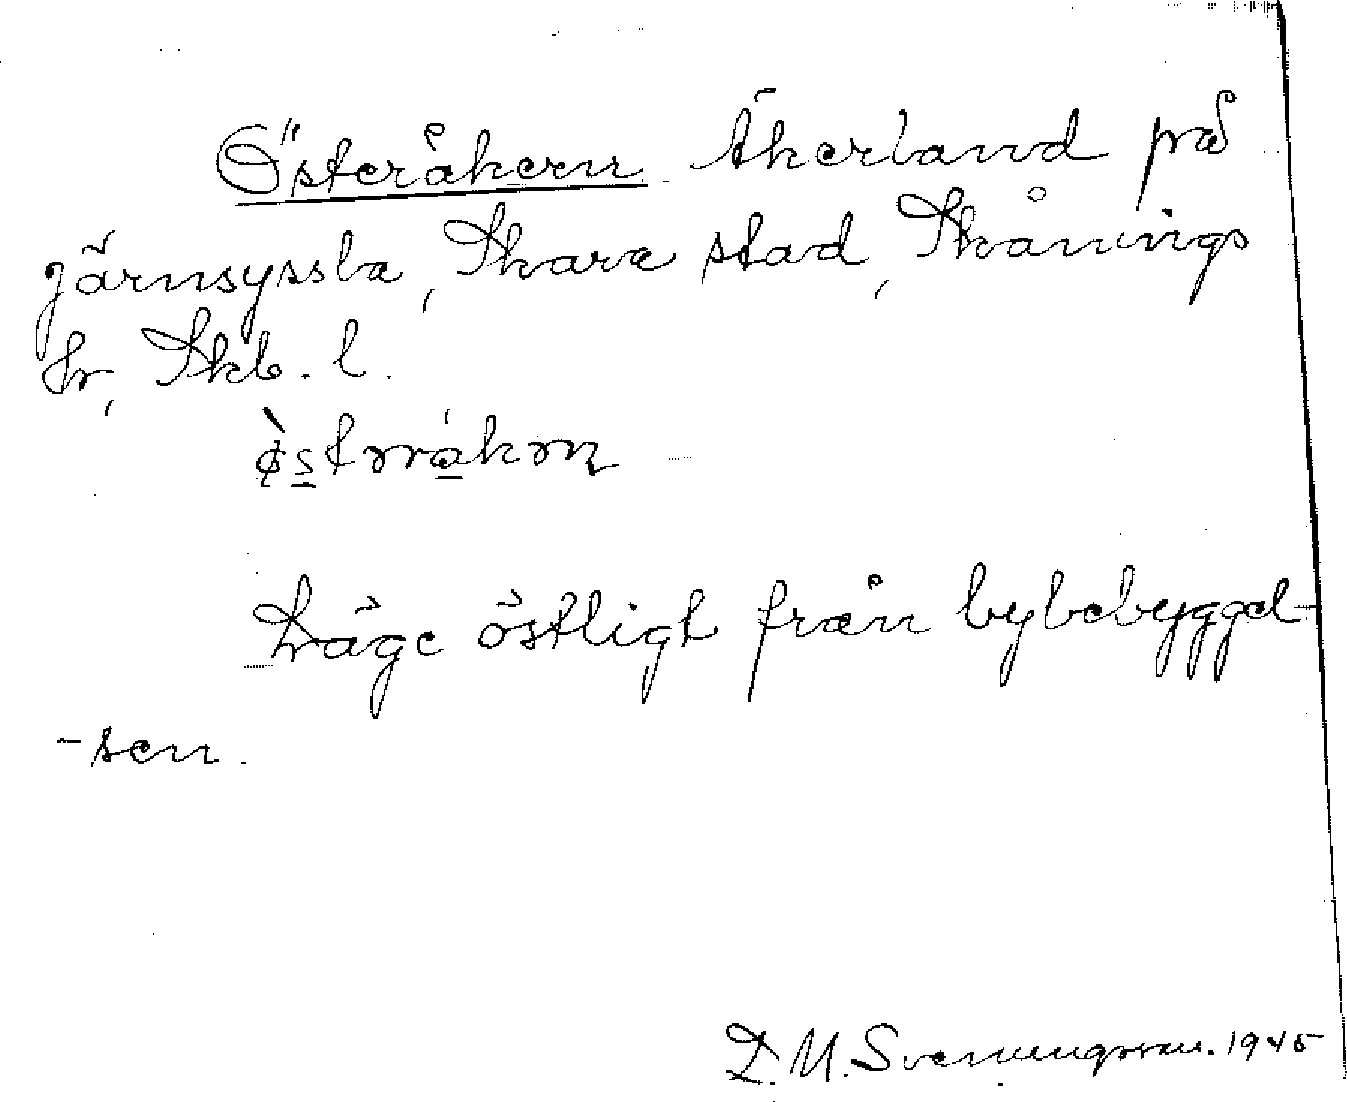 Österåkern Åkerland på
järnsyssla, Skara stad, Skånings
hr, Skb. l.
Läge östligt från bybebyggel-
-sen.
1945